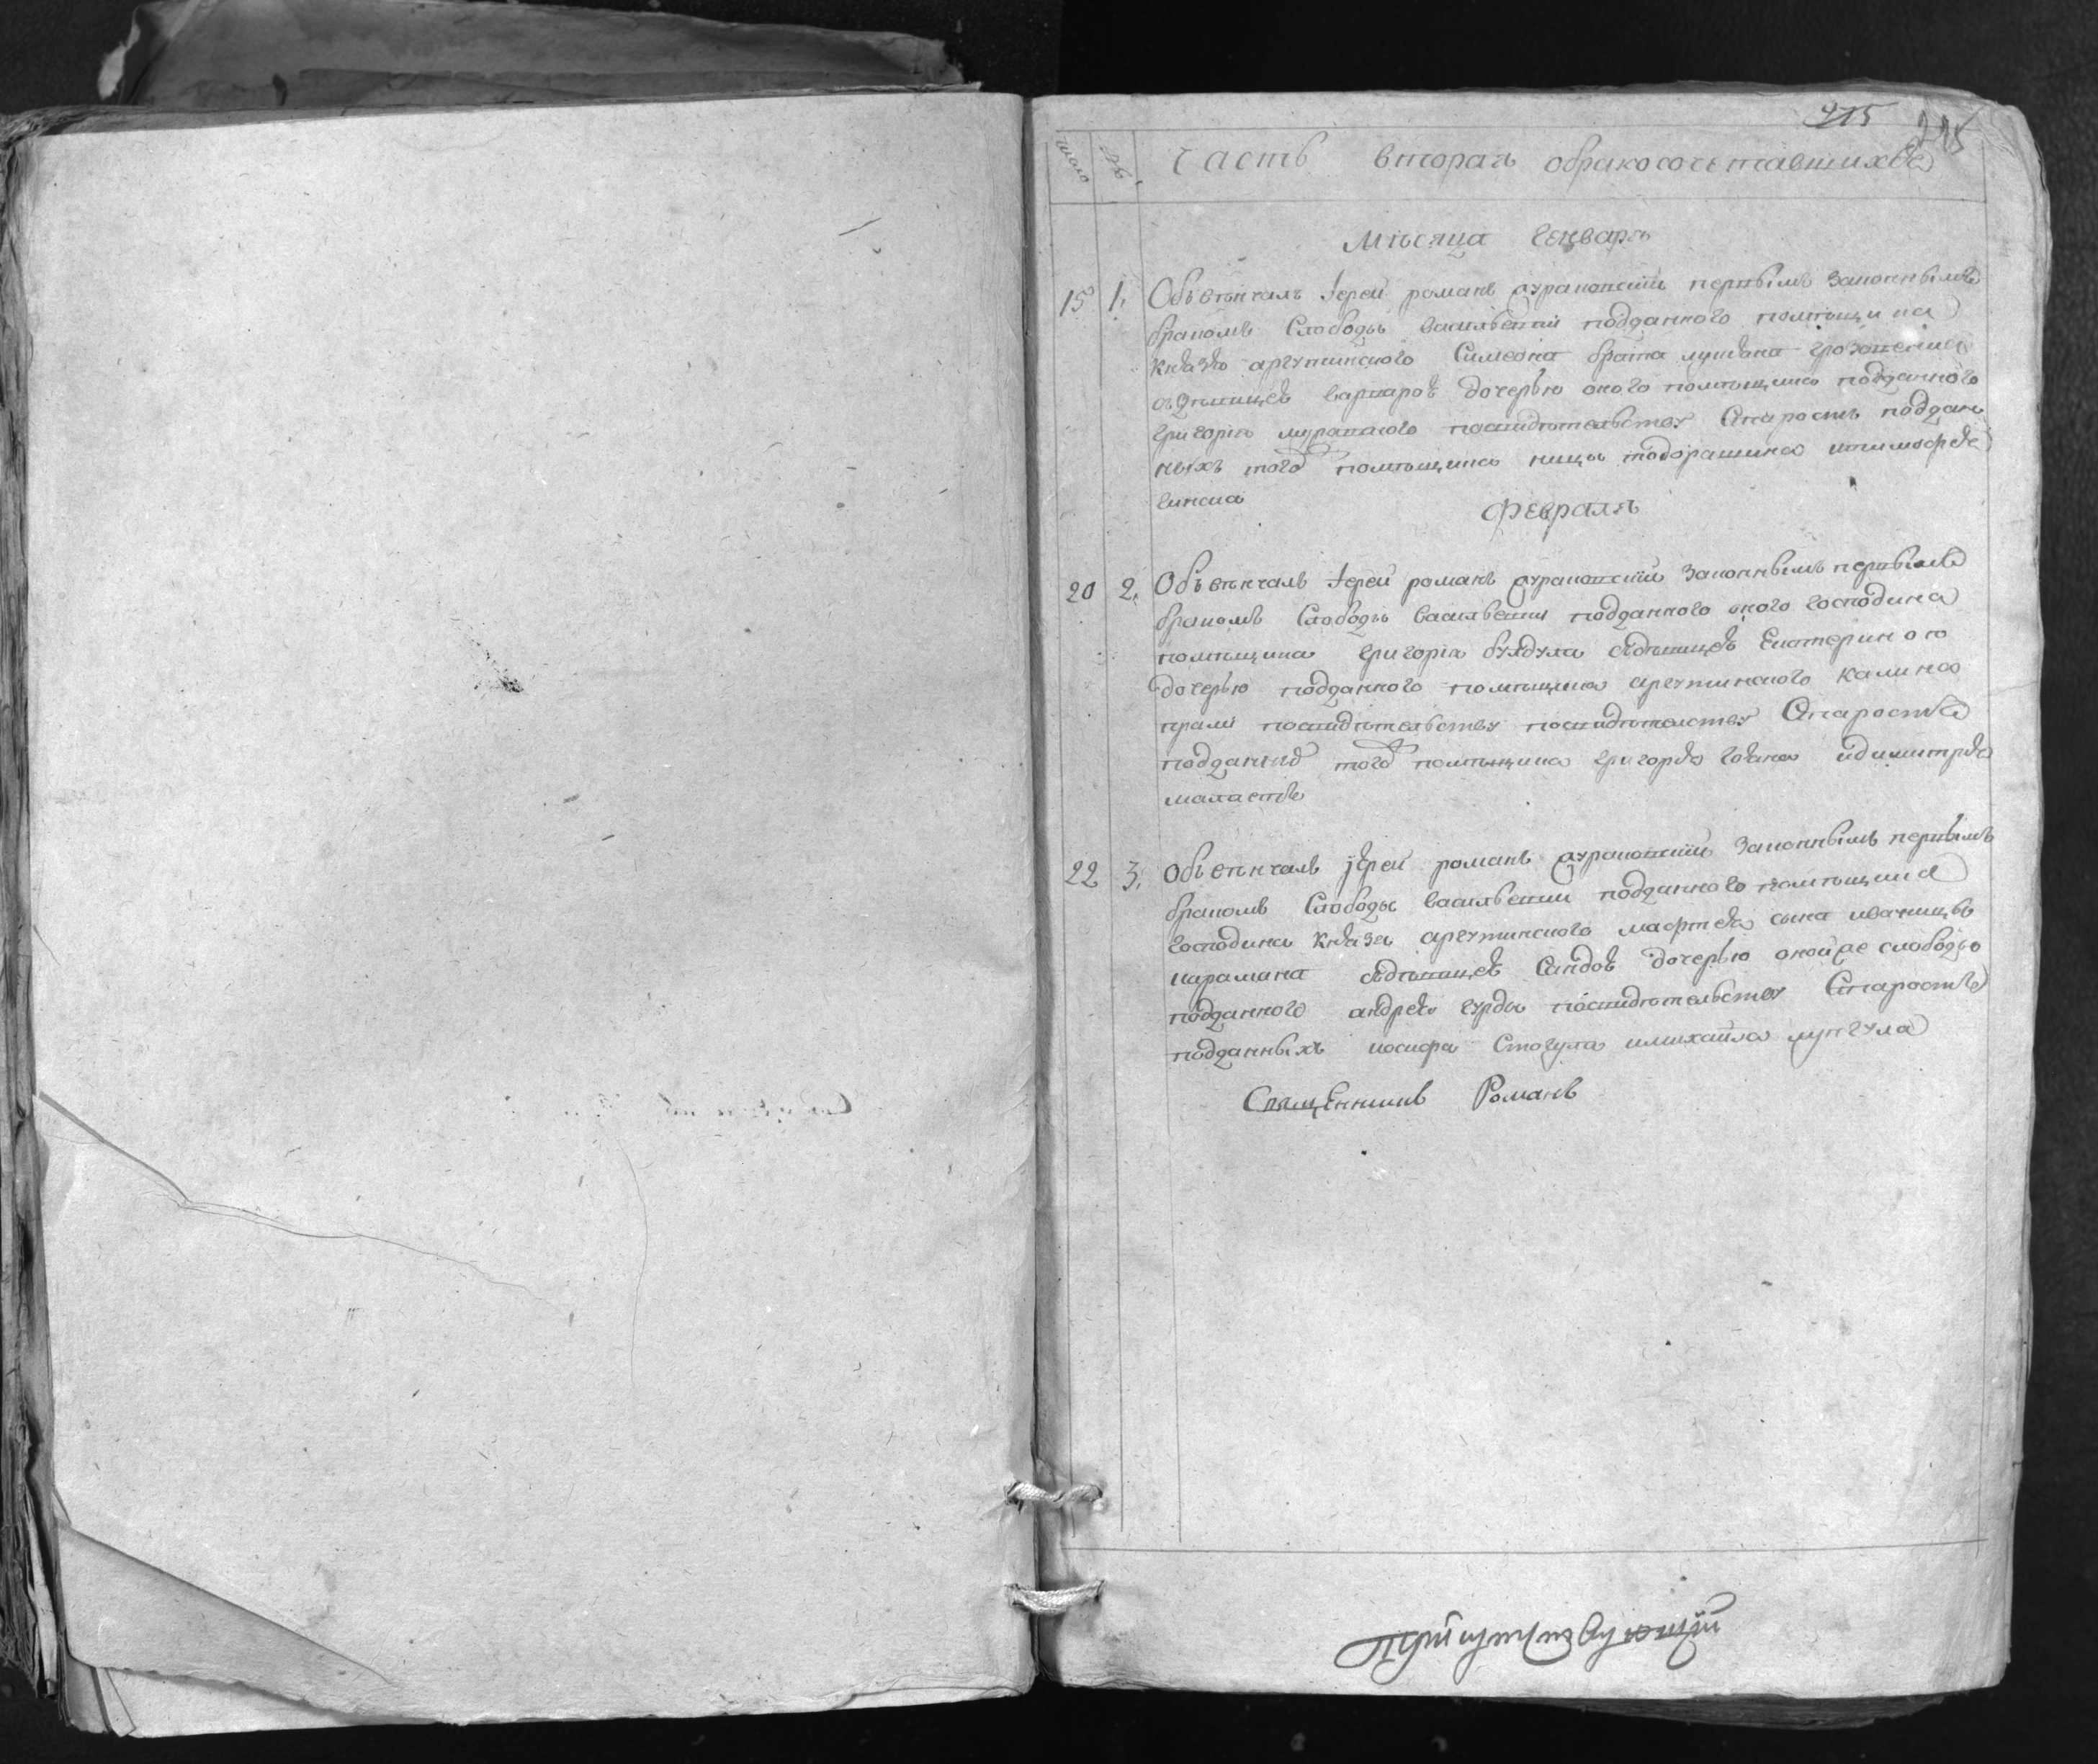 215 225
число
часть вторая обракосочетавшихся
Мѣсяца генваря
15 1. Обвѣнчалъ Іерей романъ законнымъ
бракомъ Слободы василевки подданного помѣщика
князя аргутинского Симеона брата
здѣвицею варварою дочерью оного помѣщика подданного
григорія посвидѣтелству Старость поддан
ныхъ того помѣщика
Февраля
20 2. Обвѣнчалъ Іерей романъ законнымъ первымъ
бракомъ Слободы василевки подданного оного господина
помѣщика григорія булдула здѣвицею Екатериною
дочерью подданного помѣщика аргутинского калина
посвидѣтелству посвидѣтелству Старость
подданих того помѣщика григоря гояна идимитря
22 3. Обвѣнчалъ іерей романъ законнымъ первымъ
бракомъ Слободы василевки подданного помѣщика
господина князя аргутинского мафтея сына иваницы
карамана здѣвицею Сандою дочерью онойже слободы
подданного андрея гурды посвидѣтелству Старость
подданныхъ иосифа Стогула имихаила лунгула
Священникъ Романъ
присутствующій